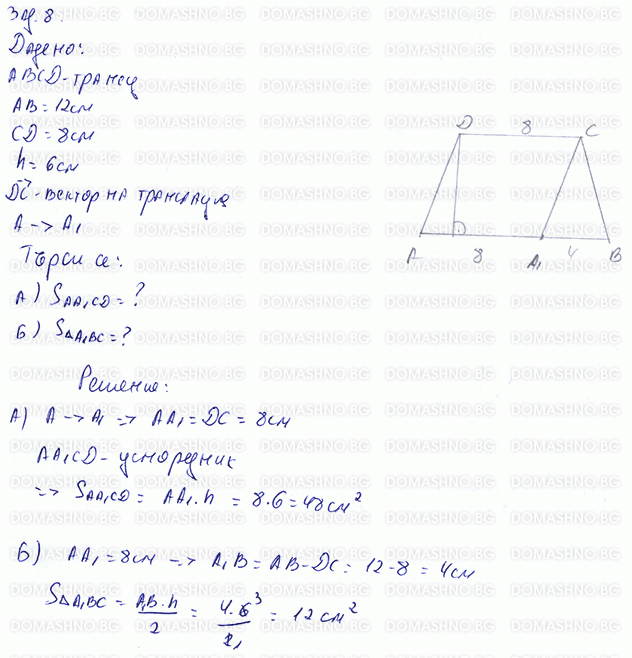 Зад. 8.
Дадено:
ABCD - трапец
AB = 12см
CD = 8см
h = 6см
DC→ - вектор на транслация
A -> A₁
Търси се:
А) S AA₁CD = ?
Б) S△A₁BC = ?
D 8 C
A 8 A₁ 4 B
Решение:
А) A -> A₁ => AA₁ = DC = 8см
AA₁CD - успоредник
=> S AA₁CD = AA₁.h = 8.6 = 48см²
Б) AA₁ = 8см => A₁B = AB - DC = 12 - 8 = 4см
S△A₁BC = A₁B.h/2 = 4.6³/2₁ = 12см²
DOMASHNO.BG